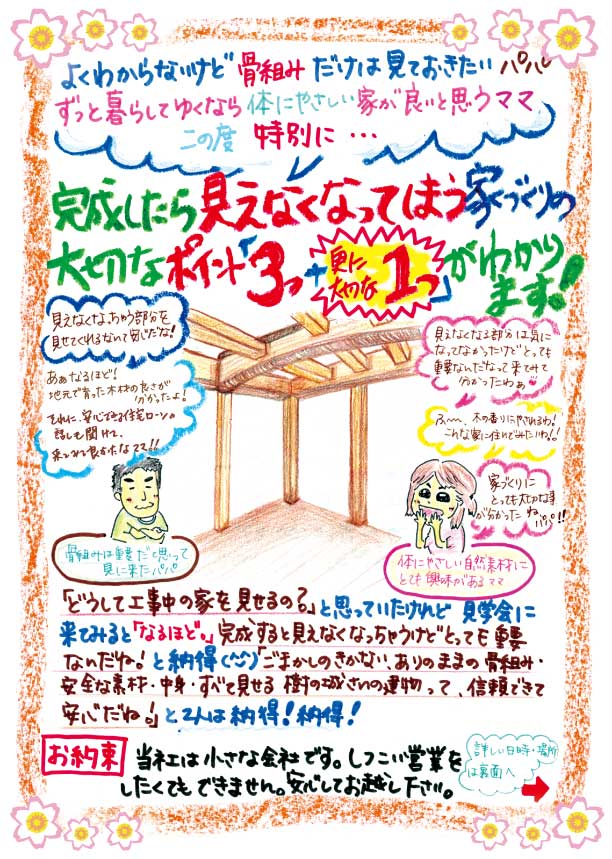 よくわからないけど 骨組み だけは 見ておきたい パパ
ずっと暮らしてゆくなら 体にやさしい 家が 良いと思うママ
この度 特別に・・・
完成したら見えなくなってしまう家づくりの
大切なポイント「3つ+更に大切な1つ」がわかります!
見えなくなっちゃう部分を
見せてくれるなんて安心だな!
あぁなるほど!
地元で育った木材の良さが
分かったよ!
それに、安心できる住宅ローンの
話しも聞けて、
来られて良かったなママ!!
骨組みは重要だと思って
見に来たパパ
見えなくなる部分は気に
なってなかったけどとっても
重要なんだなって来てみて
分かったわぁ
ふぅ〜、木の香りにいやされるわ!
こんな家に住んでみたいわ!!
家づくりに
とっても大切な事
が分かったわね
パパ!!
体にやさしい自然素材に
とても興味があるママ
「どうして工事中の家を見せるの?」と思っていたけれど 見学会に
来てみると「なるほど。」完成すると見えなくなっちゃうけどとっても重要
なんだね!と納得(^^)「ごまかしのきかない、ありのままの骨組み・
安全な素材・中身・すべて見せる 樹の城さんの建物って、信頼できて
安心だね。」と2人は納得!納得!
お約束 当社は小さな会社です。しつこい営業を
したくてもできません。安心してお越し下さい。
詳しい日時・場所
は裏面へ